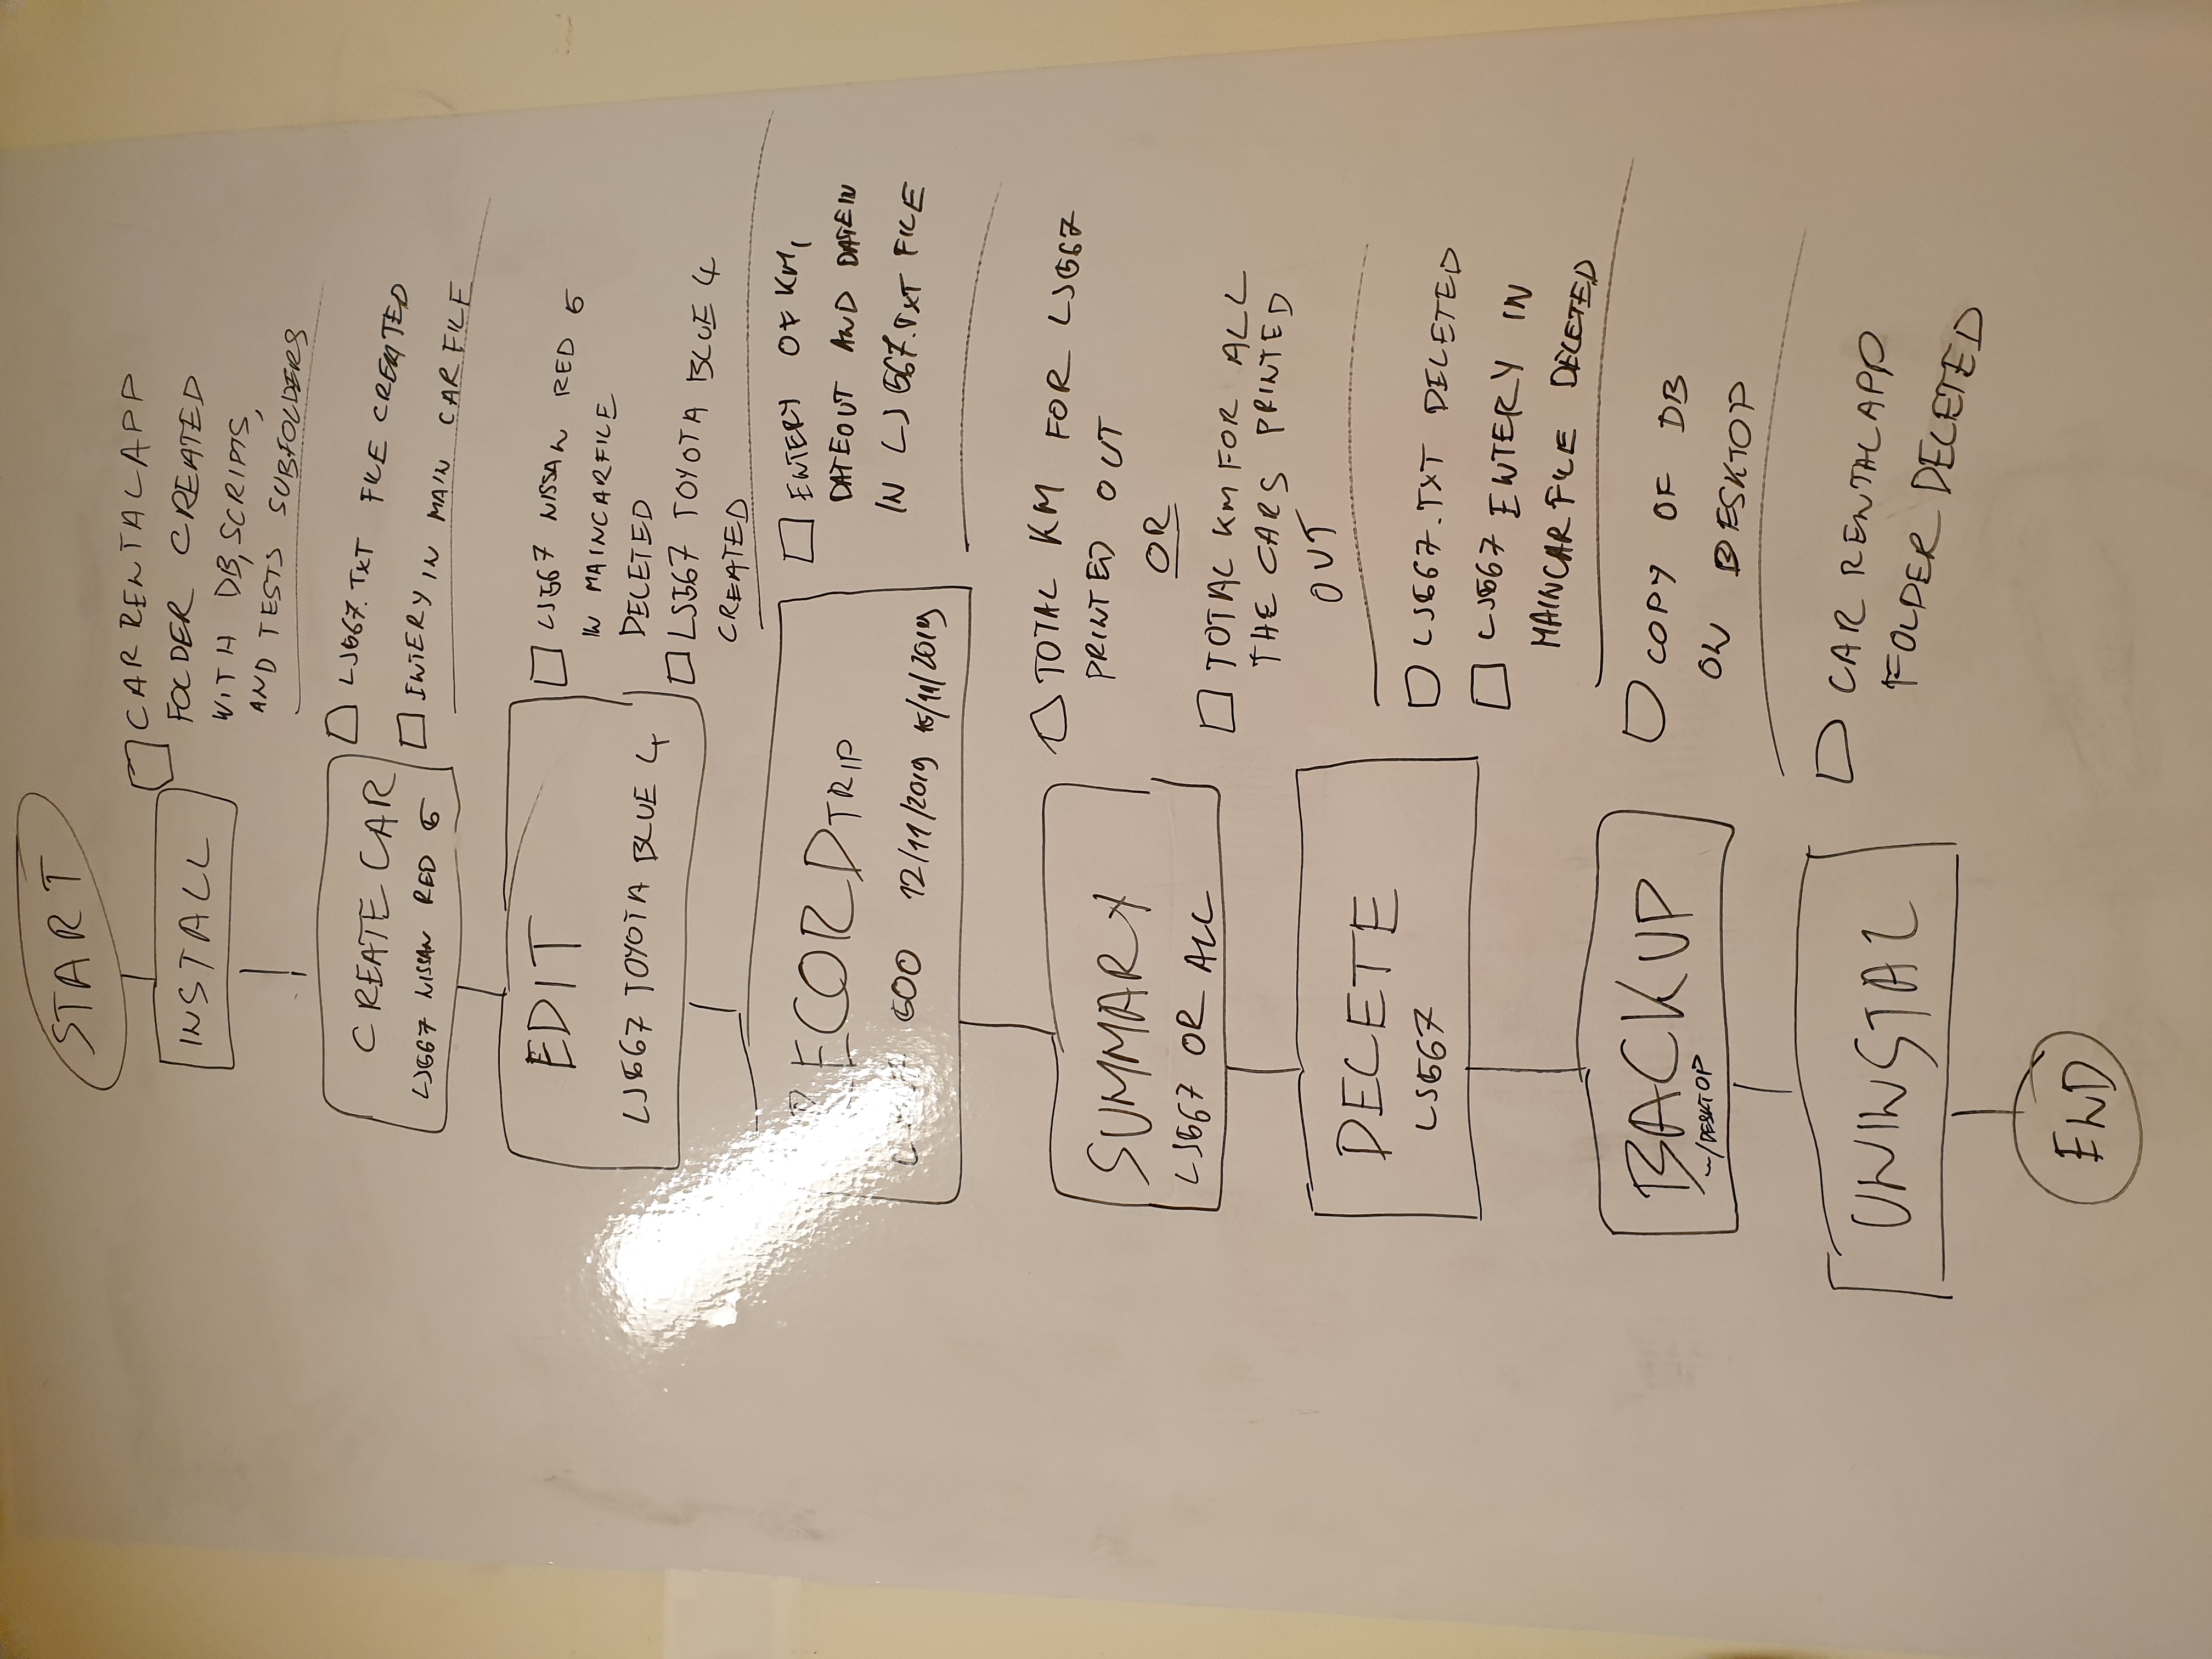 START
INSTALL
CARRENTALAPP
FOLDER CREATED
WITH DB, SCRIPTS,
AND TESTS SUBFOLDERS
CREATE CAR
LJ567 NISSAN RED 5
LJ567.TXT FILE CREATED
ENTERY IN MAIN CAR FILE
EDIT
LJ567 TOYOTA BLUE 4
LJ567 NISSAN RED 5
IN MAINCARFILE
DELETED
LJ567 TOYOTA BLUE 4
CREATED
RECORD TRIP
500 12/11/2019 15/11/2019
ENTERY OF KM,
DATEOUT AND DATEIN
IN LJ567.TXT FILE
SUMMARY
LJ567 OR ALL
TOTAL KM FOR LJ567
PRINTED OUT
OR
TOTAL KM FOR ALL
THE CARS PRINTED
OUT
DELETE
LJ567
LJ567.TXT DELETED
LJ567 ENTERY IN
MAINCARFILE DELETED
BACKUP
~/DESKTOP
COPY OF DB
ON DESKTOP
UNINSTAL
CARRENTALAPP
FOLDER DELETED
END